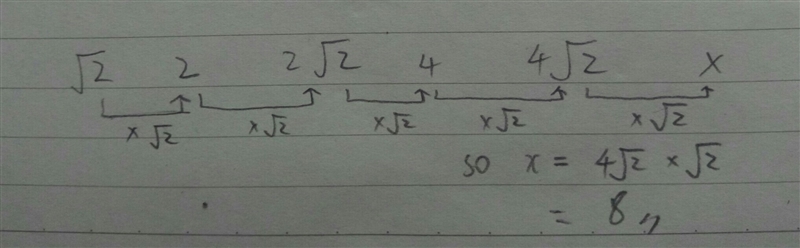 √2 2 2√2 4 4√2 x
×√2 ×√2 ×√2 ×√2 ×√2
so x = 4√2 ×√2
= 8,,